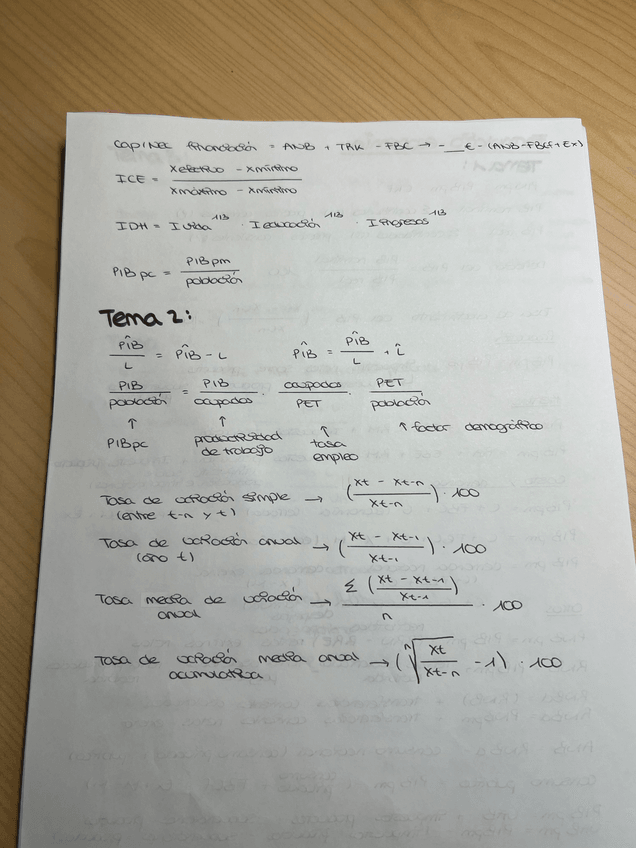 Cap/Nec financiación = ANB + TRK - FBC → - __€ - (ANB - FBCf + Ex)
ICE = (Xefectivo - Xmínimo) / (Xmáximo - Xmínimo)
IDH = I vida^1/3 · I educación^1/3 · I ingresos^1/3
PIB pc = PIB pm / población
Tema 2:
PÎB / L = PÎB - L    PÎB = PÎB / L + L̂
PIB / población = PIB / ocupados · ocupados / PET · PET / población
↑ ↑ ↑ ↑ factor demográfico
PIB pc productividad de trabajo tasa empleo
Tasa de variación simple → ((Xt - Xt-n) / Xt-n) · 100
(entre t-n y t)
Tasa de variación anual → ((Xt - Xt-1) / Xt-1) · 100
(año t)
Tasa media de variación anual → Σ ((Xt - Xt-1) / Xt-1) / n · 100
Tasa de variación media anual acumulativa → (ⁿ√(Xt / Xt-n) - 1) · 100